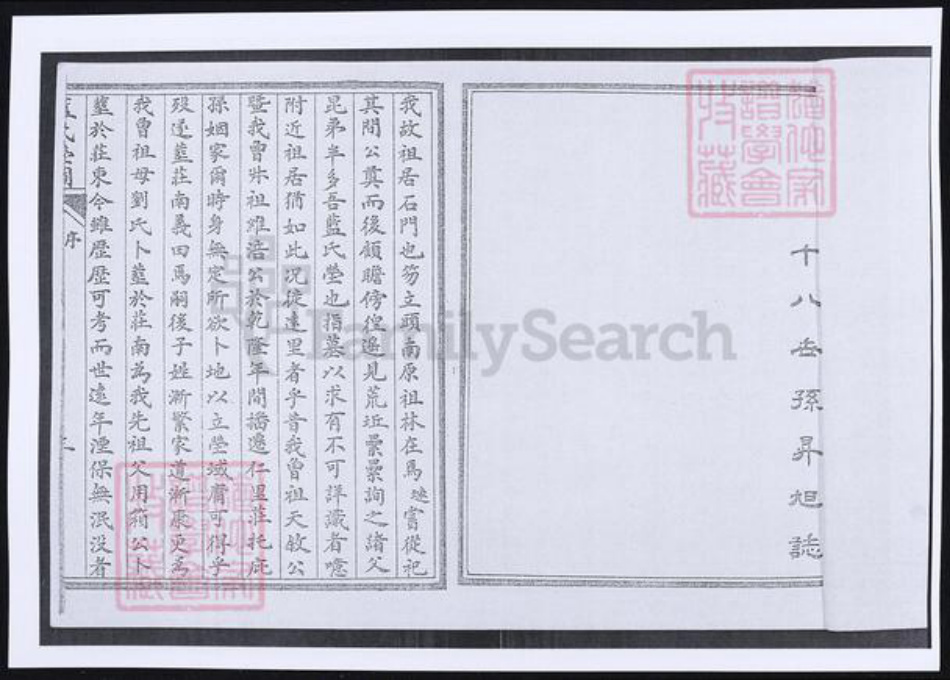 十八岳孫昇旭誌
我故祖居石門也笏立頭南原祖林在焉 嘗從祀
其間公奠而後顧瞻傍徨遍見荒坵纍纍詢之諸父
昆弟半多吾藍氏塋也指墓以求有不可詳識者噫
附近祖居猶如此况徙遠里者乎昔我曾祖天敘公
暨我曾叔祖維浩公於乾隆年間播遷仁里莊托庇
孫姻家爾時身無定所欲卜地以立塋域庸可得乎
歿遂葬莊南義田焉嗣後子姓漸繁家道漸康更為
我曾祖母劉氏卜葬於莊南為我先祖父用箱公卜
葬於莊東今雖歷歷可考而世遠年湮保無泯没者
藍氏塋圖
序
FamilySearch